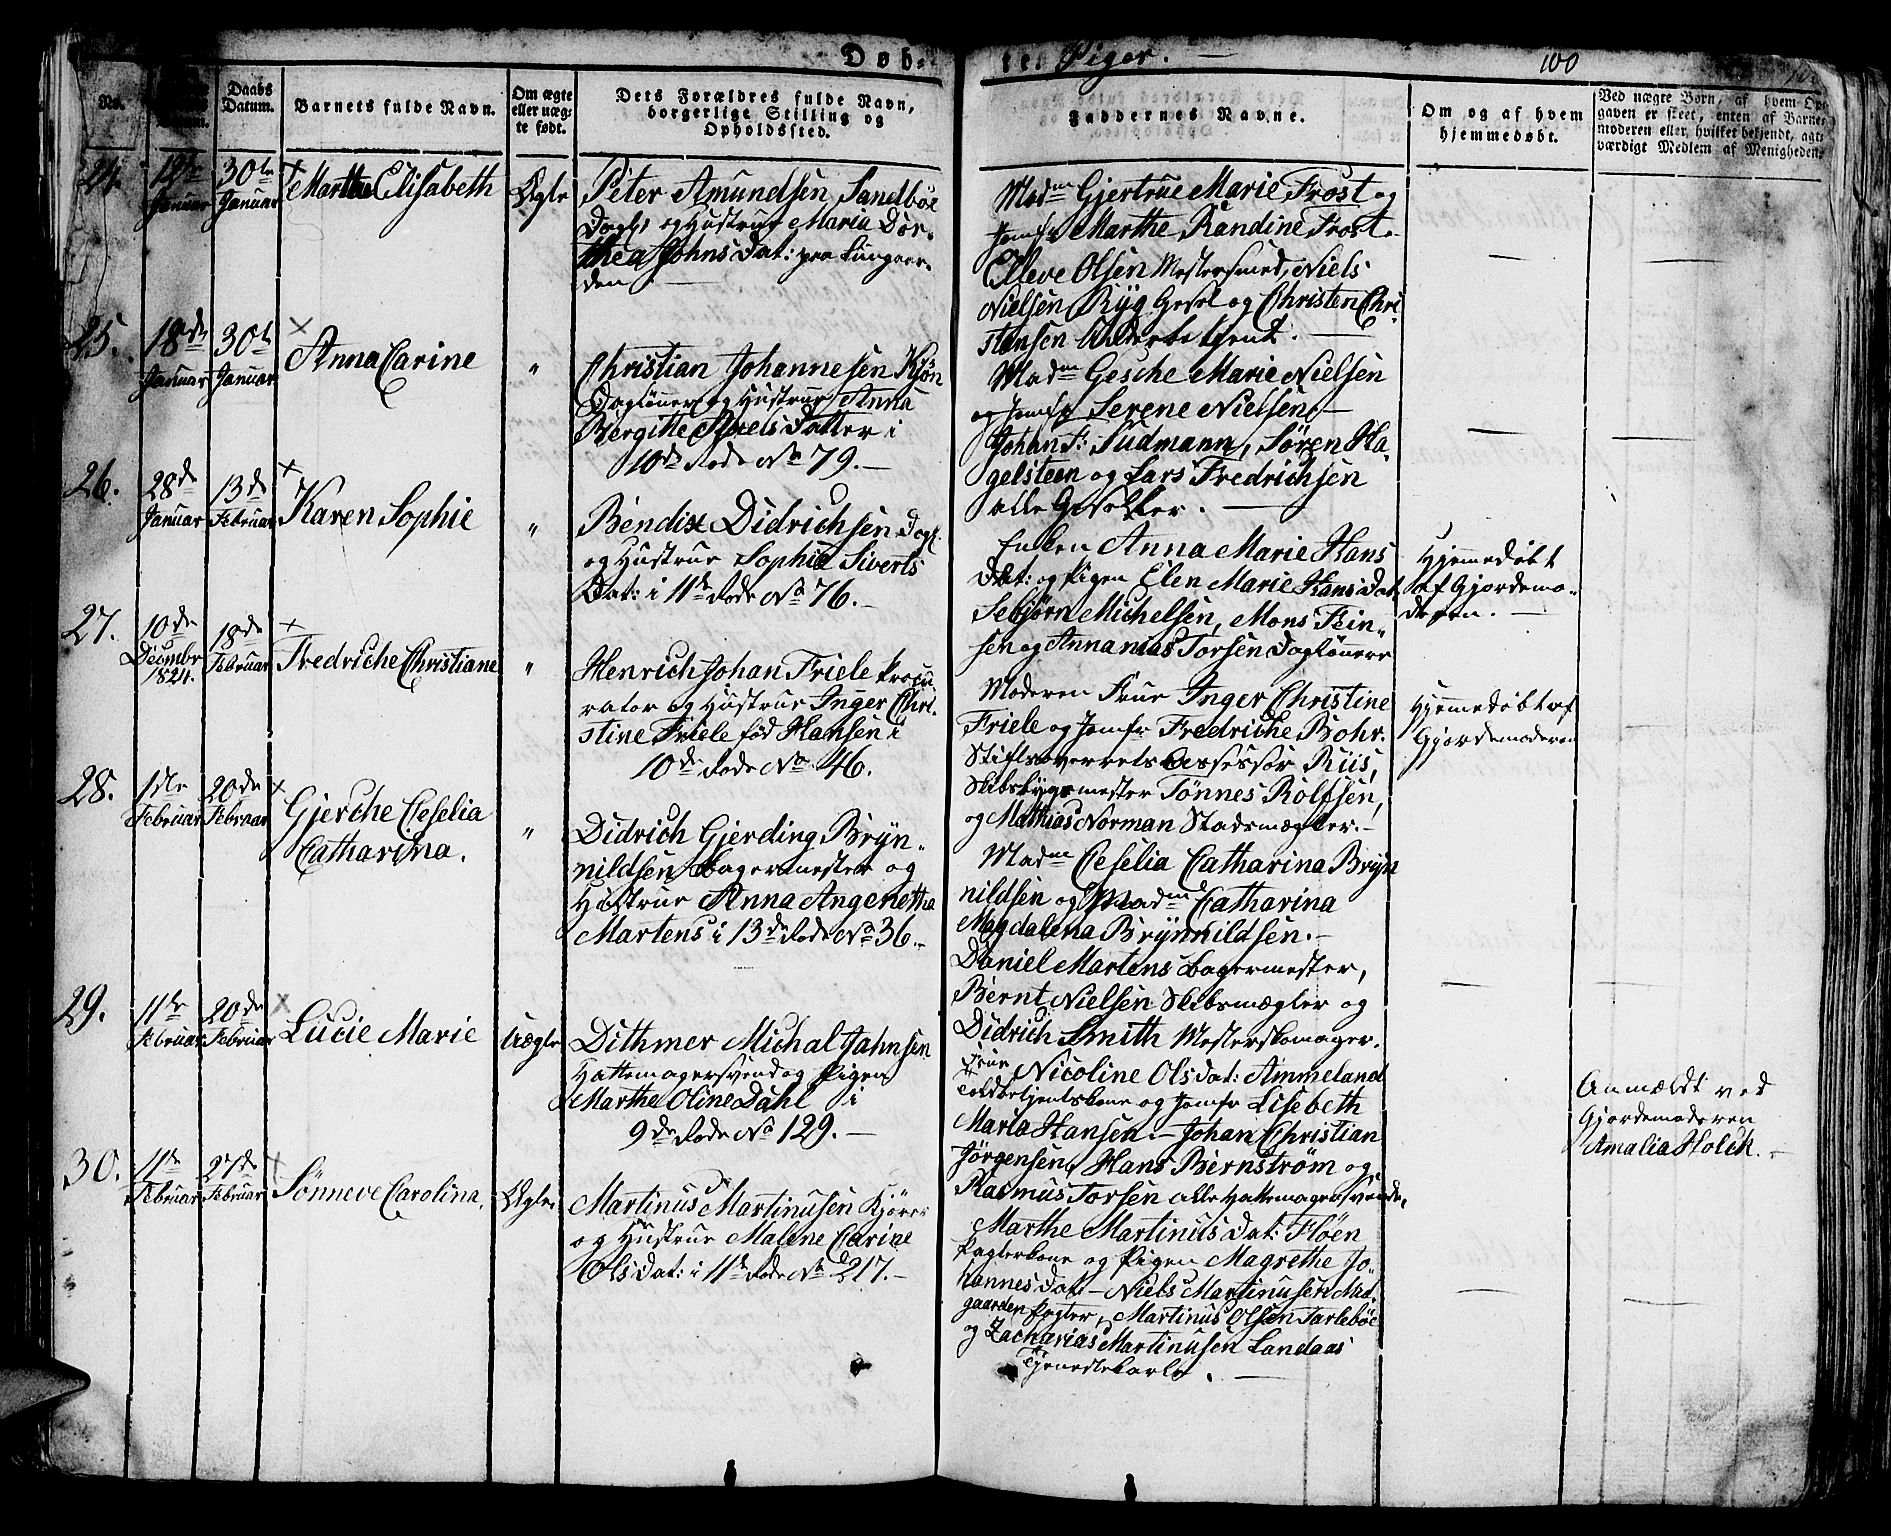 Døb- te Piger. — 100
No.
Daabs Datum.
Barnets fulde Navn.
Om ægte eller uægte født.
Dets Forældres fulde Navn, borgerlige Stilling og Opholdssted.
Faddernes Navne.
Om og af hvem hjemmedøbt.
Ved uægte Børn, af hvem Opgaven er skeet, enten af Barnemoderen eller, hvilket bekjendt, agtværdigt Medlem af Menigheden.
24.
Januar
30te Januar
Marthe Elisabeth
Ægte
Peter Amundsen Sandbøe
Dagl: og Hustrue Maria Dor-
thea Johns Dat: paa Lungaar-
den
Madme Gjertrue Marie Frost og
Jomfr Marthe Randine Frost.
Elleve Olsen Mestersmed, Niels
Nielsen Ryg Gesel og Christen Chri-
stensen
25.
18de Januar
30te Januar
Anna Carine
"
Christian Johannesen Kjøn
Dagløner og Hustrue Anna
Bergitte Niels Datter i
10de Rode No 79. —
Madme Gesche Marie Nielsen
og Jomfr Serene Nielsen, —
Johan F: Sudmann, Søren Ha-
gelsteen og Lars Fredrichsen
alle Geseller. —
26.
28de Januar
13de Februar
Karen Sophie
"
Bendix Didrichsen Dagl.
og Hustrue Sophie Siverts
Dat: i 11te Rode No 76. —
Enken Anna Marie Hans
Dat: og Pigen Elen Marie Hans Dat
Sebjørn Michelsen, Mons Fin-
sen og Annanias Torsen Dagløner
Hjemmedøbt
af Gjordemo-
deren. —
27.
10de Decembr 1824.
18de Februar
Fredriche Christiane
"
Henrich Johan Friele Procu
rator og Hustrue Inger Chri-
stine Friele fød Hansen i
10de Rode No 46.
Moderen Frue Inger Christine
Friele og Jomfr Fredriche Bohr.
Stiftsoverretsassessor Riis,
Skibsbygmester Tønnes Rolfsen,
og Mathias Norman Stadsmægler. —
Hjemmedøbt af
Gjordemoderen
28.
1ste Februar
20de Februar
Gjerche Ceselia
Catharina.
"
Didrich Gjerding Bryn-
nildsen Bagermester og
Hustrue Anna Angenetha
Martens i 13de Rode No 36. —
Madme Ceselia Catharina Bryn
nildsen og Madme Catharina
Magdalena Brynnildsen. —
Daniel Martens Bagermester,
Bernt Nielsen Skibsmægler og
Didrich Smith Mesterskomager.
29.
11te Februar
20de Februar
Lucie Marie
Uægte
Dithmer Michal Jahnsen
Hattemagersvend og Pigen
Marthe Oline Dahl i
9de Rode No 129. —
Frue Nicoline Olsdat: Ammeland
Toldbetjentskone og Jomfr Lisebeth
Maria Hansen. — Johan Christian
Jørgensen, Hans Bernstrøm og
Rasmus Torsen alle Hattemagersvende,
Anmældt ved
Gjordemoderen
Amalia Holck. —
30.
11te Februar
27de Februar
Sønneve Carolina.
Ægte
Martinus Martinusen Kjører
og Hustrue Malene Carine
Olsdat: i 11te Rode No 217. —
Marthe Martinus Dat: Fløen
Pagterkone og Pigen Magrethe Jo-
hannes Dat: — Niels Martinusen
gaarden Pagter, Martinus Olsen Tarlebøe
og Zacharias Martinusen Landaas
Tjenestekarle. —